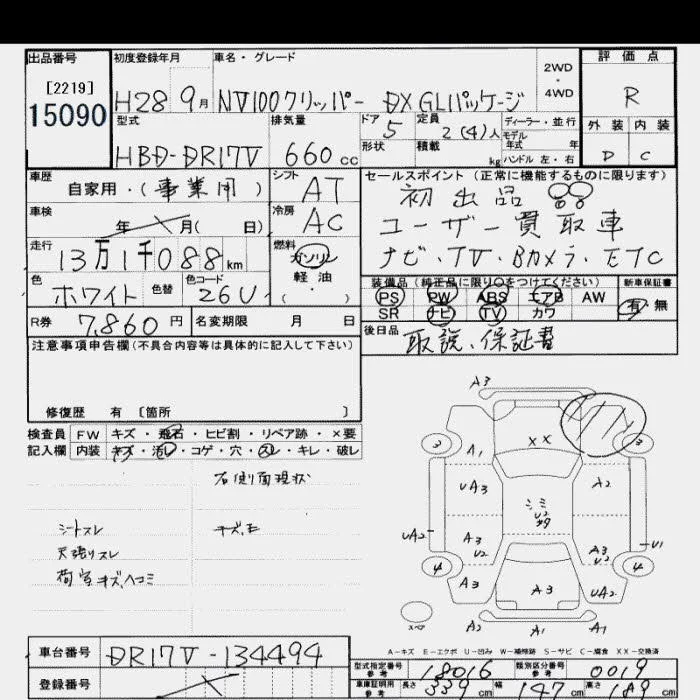 出品番号 初度登録年月 車名・グレード 評価点
[2219] 2WD・4WD
15090 H28 9月 NV100クリッパー DX GLパッケージ R
型式 排気量 ドア 5 定員 2(4)人 ディーラー・並行 外装 内装
モデル年式 年式
HBD-DR17V 660cc 形状 積載 kg ハンドル 左・右 D C
車歴 シフト セールスポイント(正常に機能するものに限ります)
自家用・(事業用) AT 初出品
車検 冷房
年 月( 日) AC ユーザー買取車
走行 燃料
13万1千088km ガソリン ナビ・TV・Bカメラ・ETC
色 色替 色コード 軽油 装備品(純正品に限り○をつけてください) 新車保証書
ホワイト 26U ( ) PS PW ABS エアB AW 有 無
SR ナビ TV カワ
R券 7,860円 名変期限 月 日 後日品
取説、保証書
注意事項申告欄(不具合内容等は具体的に記入して下さい)
修復歴 有 [箇所 ]
検査員 FW キズ・飛石・ヒビ割・リペア跡・×要
記入欄 内装 キズ・汚レ・コゲ・穴・スレ・キレ・破レ
右側面現状
シートスレ キズ、E
天張りスレ
荷室キズ、ヘコミ
A3
3 3
XX
A1
UA3 A2
シミ
U2
UA2 A3 U2 A3 U2 U1
4 4
A3 A3 UA2
スペア A2 A1
A-キズ E-エクボ U-凹み W-補修跡 S-サビ C-腐食 XX-交換済
車台番号 DR17V-134494
型式指定番号 参考 18016 類別区分番号 参考 0019
登録番号
車庫証明用 参考 長さ 339cm 幅 147cm 高さ 189cm